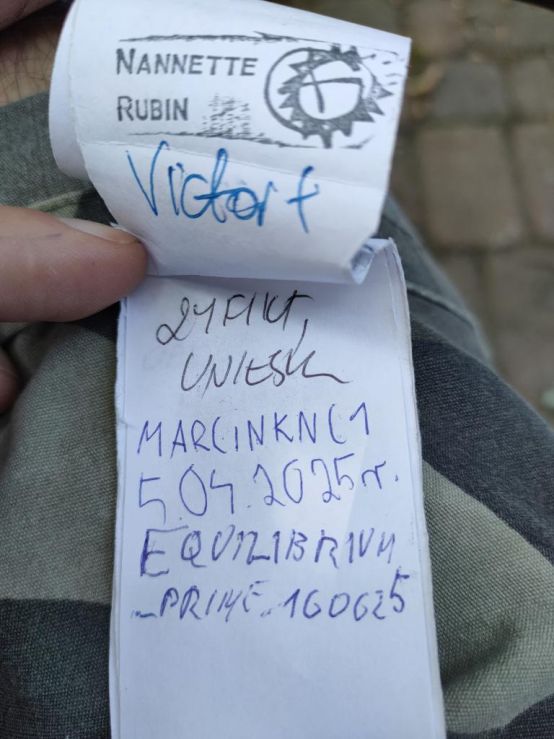 NANNETTE
RUBIN
Victort
MARCINKNC1
5.04.2025r.
EQUILIBRIUM
_PRIME_160625